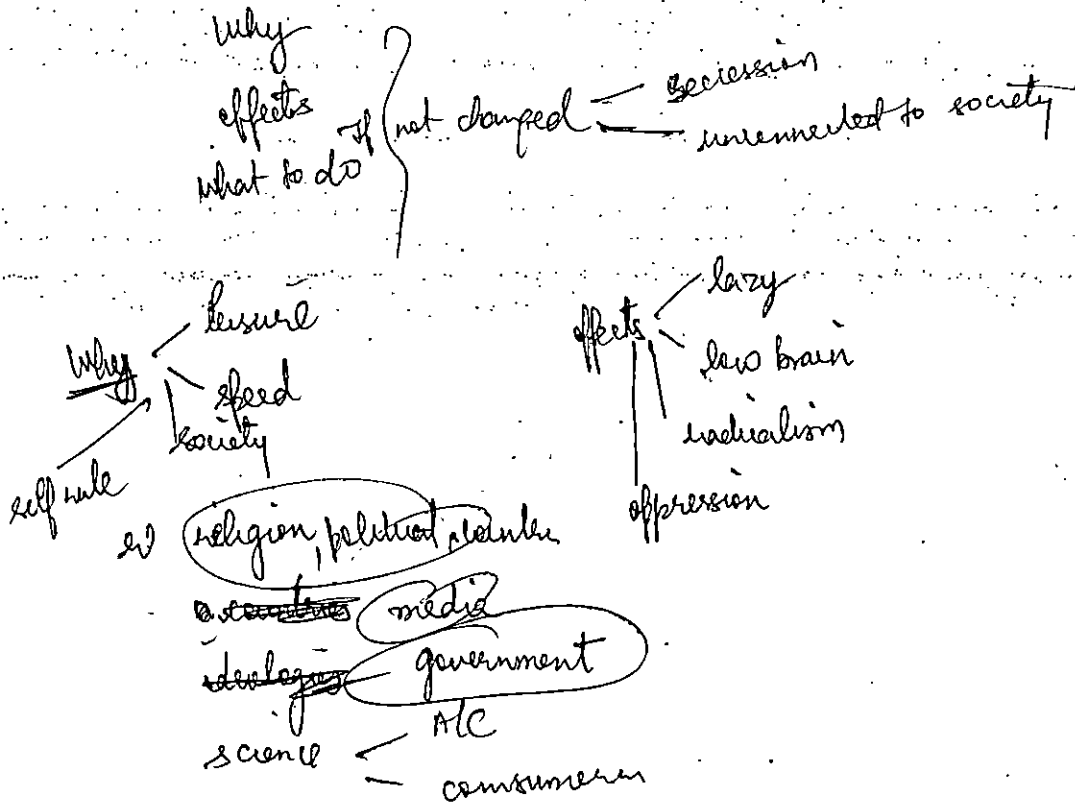 why
effects
what to do
If not changed
secession
unconnected to society
why
leisure
speed
society
self rule
effects
lazy
low brain
radicalism
oppression
religion, political,
media
government
science
A/C